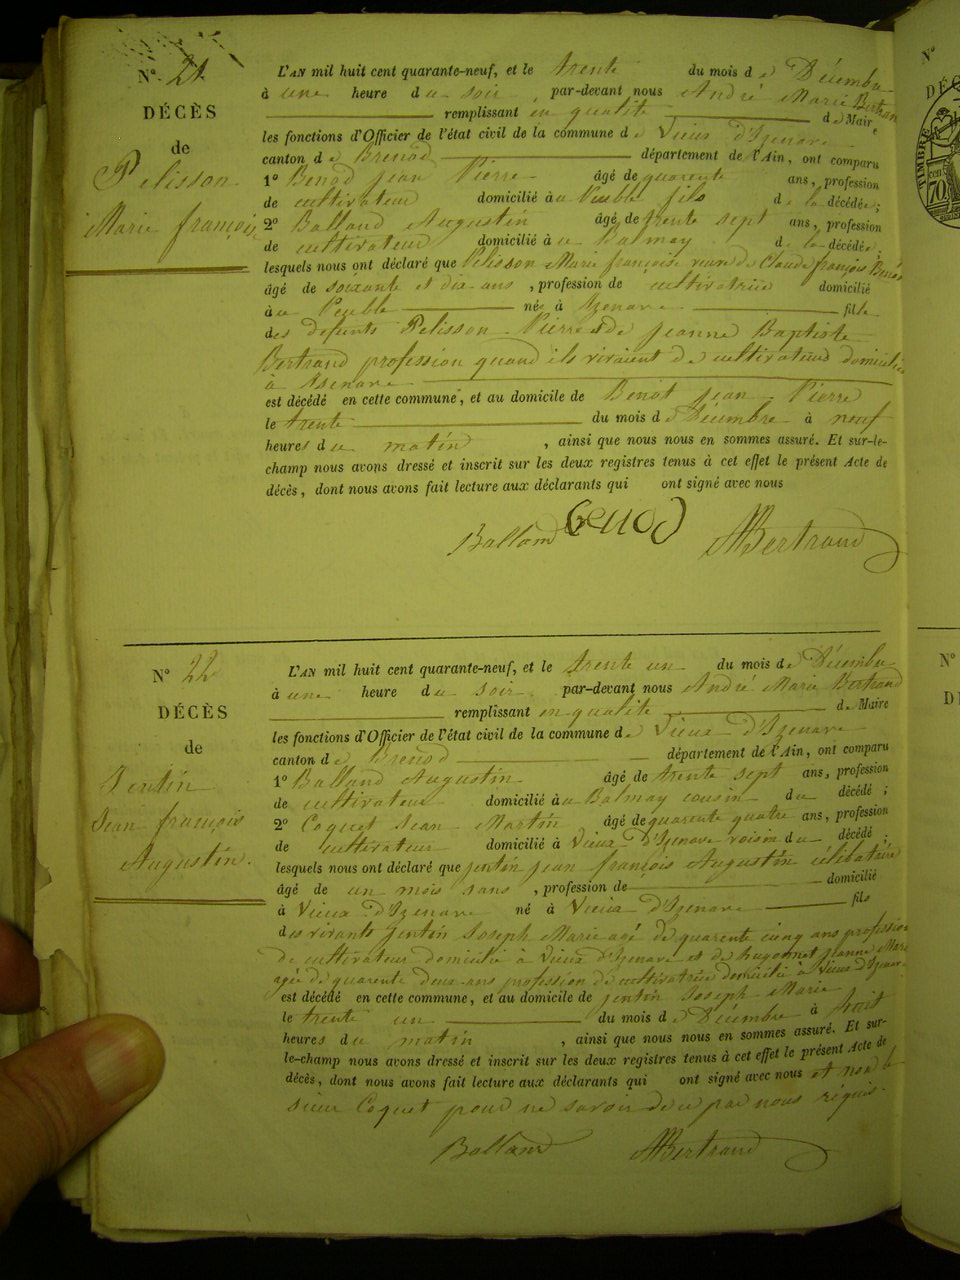 N° 21
DÉCÈS
de
Pelisson
Marie françoise
L'AN mil huit cent quarante-neuf, et le trente du mois de Décembre
à une heure du soir, par-devant nous André Marie Bertrand
remplissant en qualité de Maire
les fonctions d'Officier de l'état civil de la commune de Vieux d'Izenave
canton de Brenod département de l'Ain, ont comparu
1° Benod jean Pierre âgé de quarente ans, profession
de cultivateur domicilié au Peuble fils de la décédée;
2° Balland Augustin âgé de trente sept ans, profession
de cultivateur domicilié à Balmay de la décédée;
lesquels nous ont déclaré que Pelisson Marie françoise veuve de Claude françois Benod
âgé de soixante et dix ans, profession de cultivatrice domicilié
au Peuble née à Izenave fille
des defunts Pelisson Pierre & de jeanne Baptiste
Bertrand profession quand ils vivaient de cultivateurs domiciliés
à Izenave
est décédé en cette commune, et au domicile de Benot jean Pierre
le trente du mois de Décembre à neuf
heures du matin, ainsi que nous nous en sommes assuré. Et sur-le-
champ nous avons dressé et inscrit sur les deux registres tenus à cet effet le présent Acte de
décès, dont nous avons fait lecture aux déclarants qui ont signé avec nous
Balland Benod AMBertrand
N° 22
DÉCÈS
de
Jentin
Jean françois
Augustin.
L'AN mil huit cent quarante-neuf, et le trente un du mois de Décembre
à une heure du soir, par-devant nous André Marie Bertrand
remplissant en qualité de Maire
les fonctions d'Officier de l'état civil de la commune de Vieux d'Izenave
canton de Brenod département de l'Ain, ont comparu
1° Balland Augustin âgé de trente sept ans, profession
de cultivateur domicilié au Balmay cousin du décédé;
2° Coquet Jean Martin âgé de quarente quatre ans, profession
de cultivateur domicilié à Vieux d'Izenave voisin du décédé;
lesquels nous ont déclaré que jentin jean françois Augustin célibataire
âgé de un mois sans, profession de domicilié
à Vieux d'Izenave né à Vieux d'Izenave fils
des vivants Jentin Joseph Marie agé de quarente cinq ans profession
de cultivateur domicilié à Vieux d'Izenave et de hugonnet jeanne Marie
agée de quarente deux ans profession de cultivatrice domicilié à Vieux d'Izenave
est décédé en cette commune, et au domicile de jentin Joseph Marie
le trente un du mois de Décembre à huit
heures du matin, ainsi que nous nous en sommes assuré. Et sur-
le-champ nous avons dressé et inscrit sur les deux registres tenus à cet effet le présent Acte de
décès, dont nous avons fait lecture aux déclarants qui ont signé avec nous et non le
sieur Coquet pour ne savoir de ce par nous requis.
Balland AMBertrand
N°
TIMBRE
70
N°